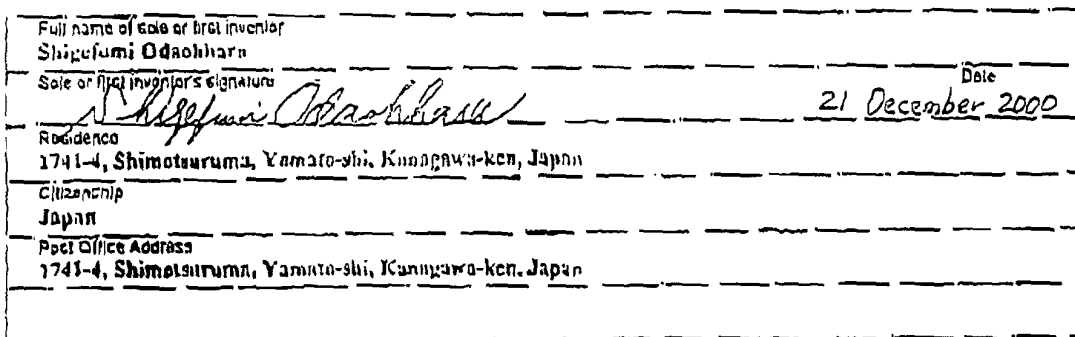 Full name of sole or first inventor
Shigefumi Odaohhara
Sole or first inventor's signature
Date
Shigefumi Odaohhara
21 December 2000
Residence
1741-4, Shimotsuruma, Yamato-shi, Kanagawa-ken, Japan
Citizenship
Japan
Post Office Address
1741-4, Shimotsuruma, Yamato-shi, Kanagawa-ken, Japan